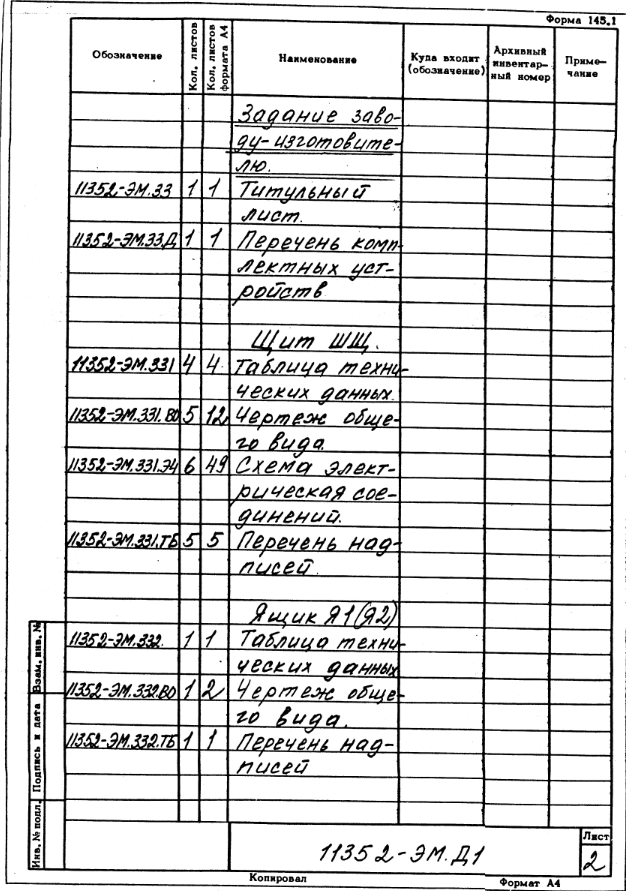 Форма 148.1
Обозначение Кол. листов Кол. листов формата А4 Наименование Куда входит (обозначение) Архивный инвентар-ный номер Приме-чание
Задание заво-
ду-изготовите-
лю.
11352-ЭМ.ЗЗ 1 1 Титульный
лист.
11352-ЭМ.ЗЗ.Д 1 1 Перечень комп-
лектных уст-
ройств
Щит ШЩ.
11352-ЭМ.ЗЗ1 4 4 Таблица техни-
ческих данных.
11352-ЭМ.ЗЗ1.ВО 5 12 Чертеж обще-
го вида.
11352-ЭМ.ЗЗ1.Э4 6 49 Схема элект-
рическая сое-
динений.
11352-ЭМ.ЗЗ1.ТБ 5 5 Перечень над-
писей.
Ящик Я1(Я2)
11352-ЭМ.ЗЗ2. 1 1 Таблица техни-
ческих данных
11352-ЭМ.ЗЗ2.ВО 1 2 Чертеж обще-
го вида.
11352-ЭМ.ЗЗ2.ТБ 1 1 Перечень над-
писей
Взам. инв. №
Подпись и дата
Инв. № подл.
11352-ЭМ.Д1
Лист
2
Копировал Формат А4